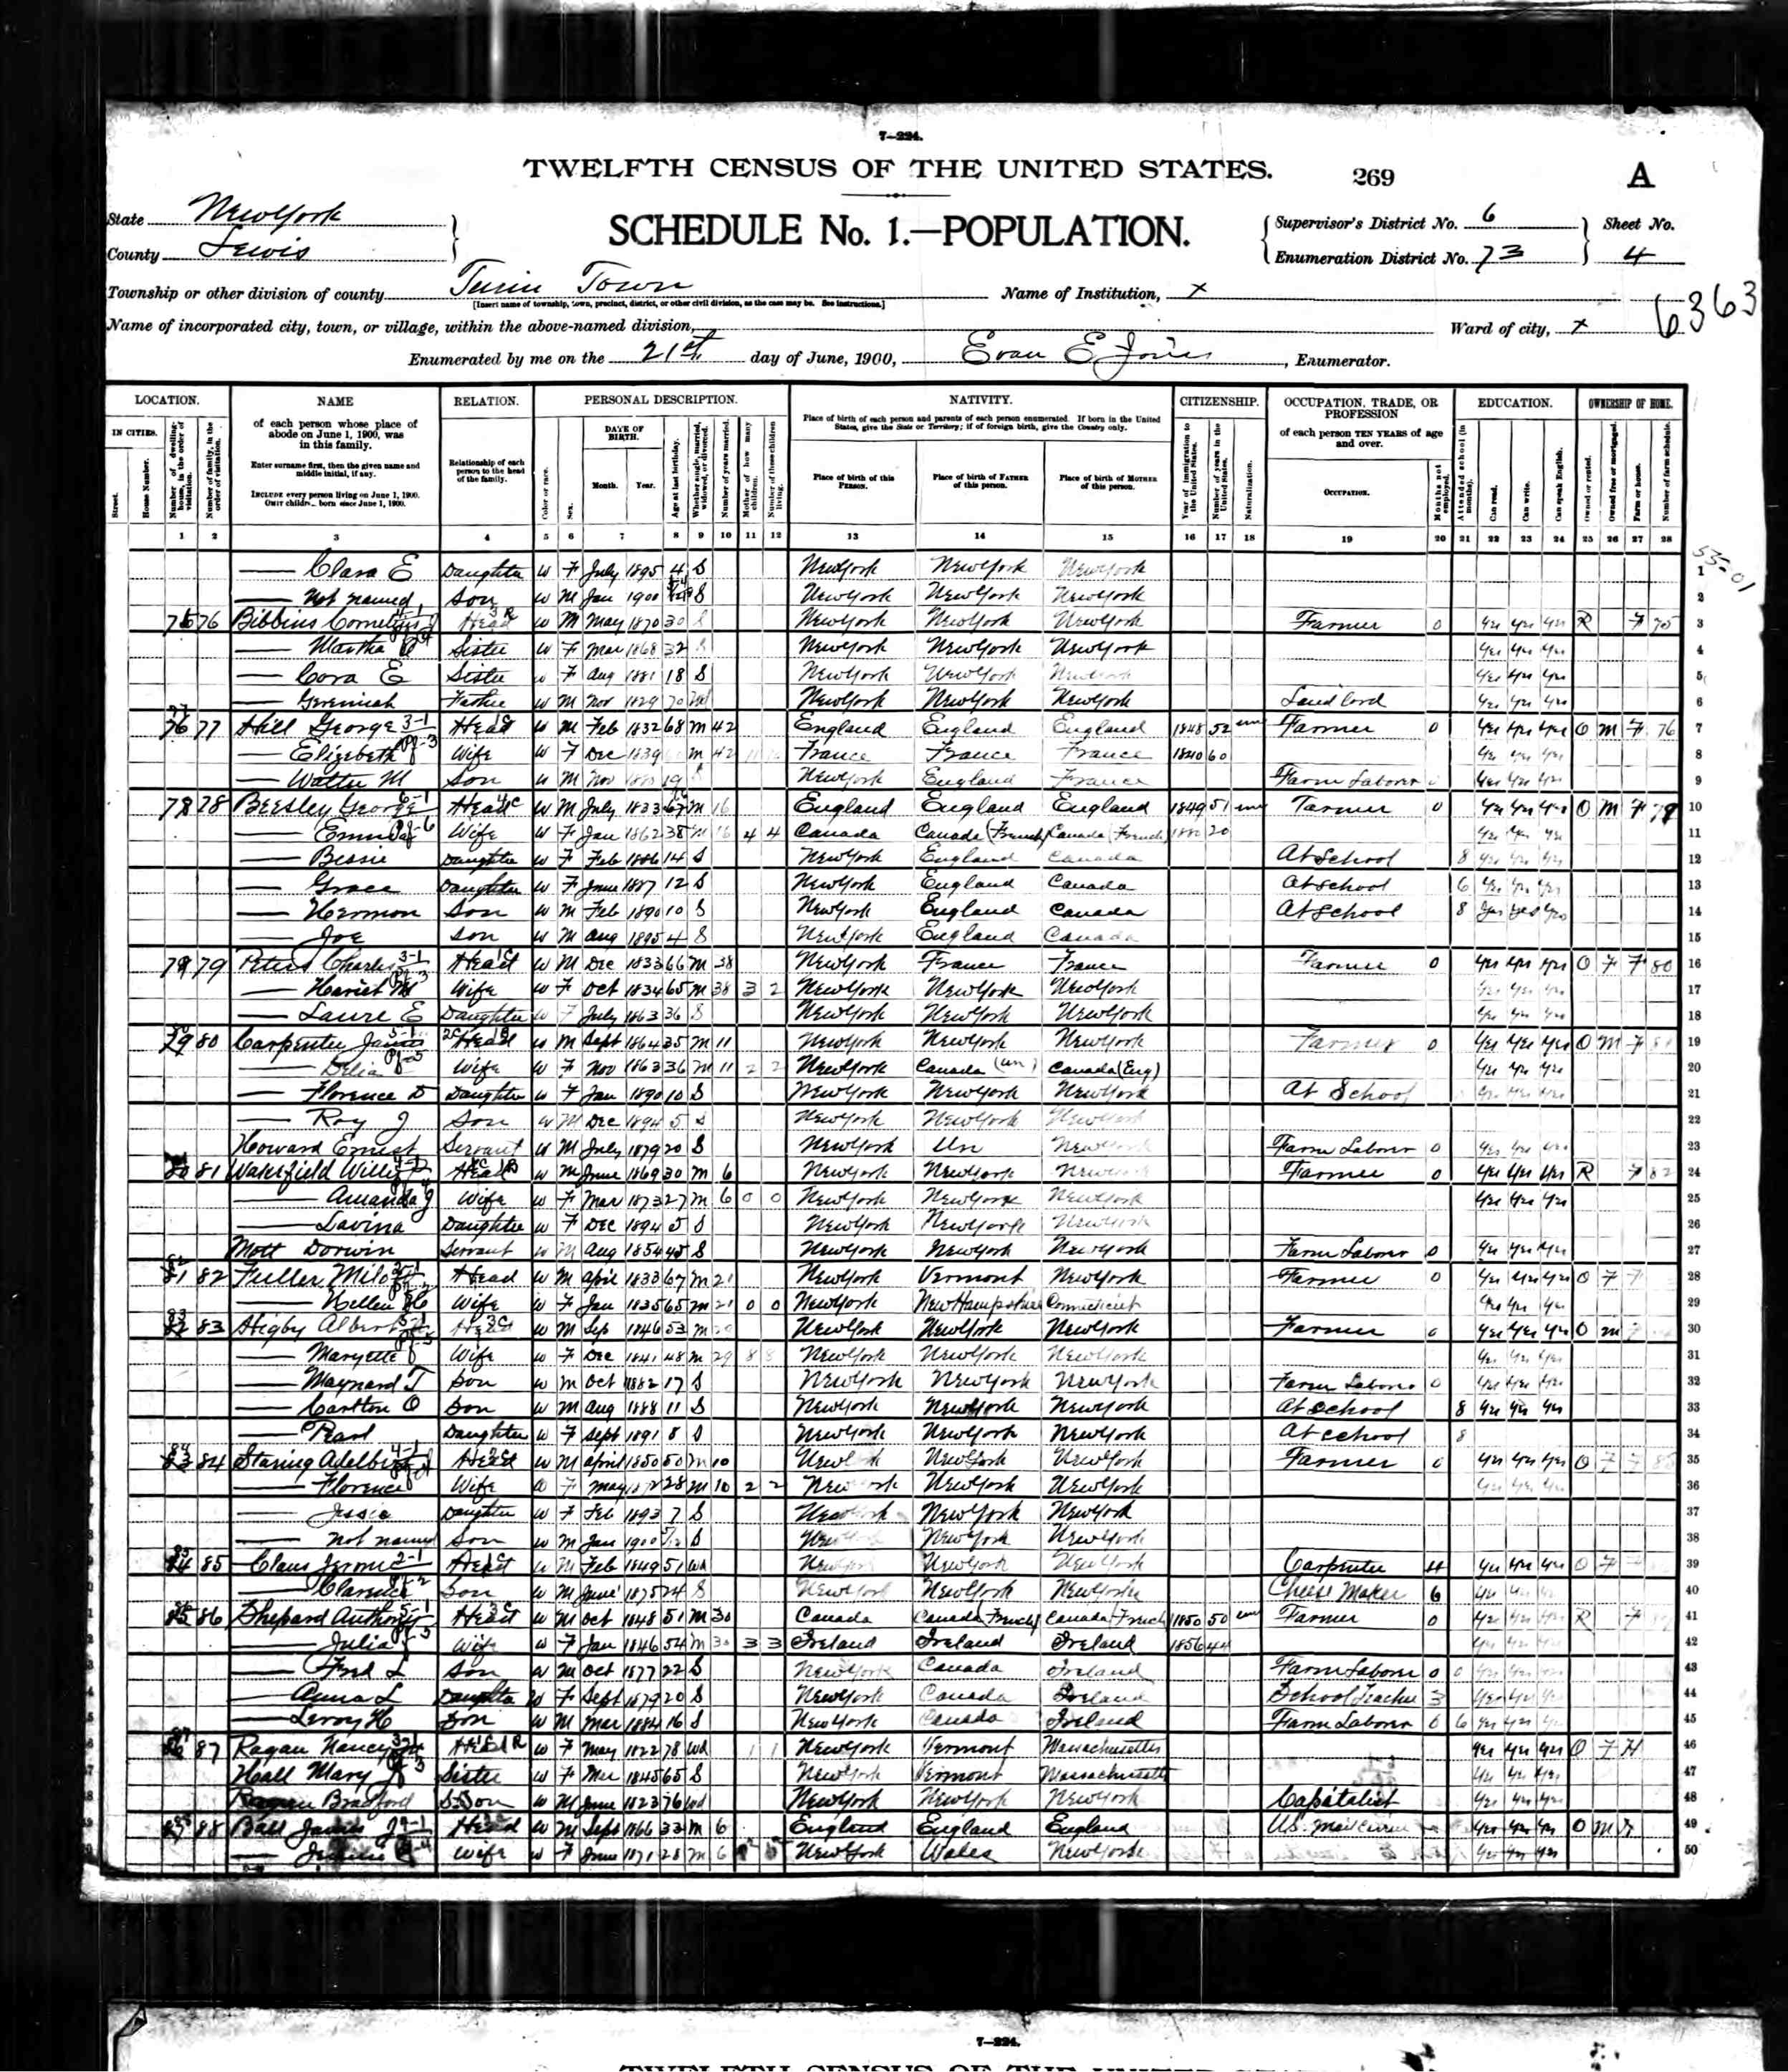 7—224.
TWELFTH CENSUS OF THE UNITED STATES.
269
A
State New York
County Lewis
SCHEDULE No. 1.—POPULATION.
Supervisor's District No. 6
Enumeration District No. 73
Sheet No.
4
Township or other division of county Turin Town
[Insert name of township, town, precinct, district, or other civil division, as the case may be. See instructions.]
Name of Institution, x
6363
Name of incorporated city, town, or village, within the above-named division,
Ward of city, x
Enumerated by me on the 21st day of June, 1900, Evan E Jones, Enumerator.
LOCATION. NAME RELATION. PERSONAL DESCRIPTION. NATIVITY. CITIZENSHIP. OCCUPATION, TRADE, OR PROFESSION EDUCATION. OWNERSHIP OF HOME.
IN CITIES. Street. House Number. Number of dwelling-house, in the order of visitation. Number of family, in the order of visitation.
of each person whose place of abode on June 1, 1900, was in this family.
Enter surname first, then the given name and middle initial, if any.
INCLUDE every person living on June 1, 1900. OMIT children born since June 1, 1900.
Relationship of each person to the head of the family.
Color or race. Sex. DATE OF BIRTH. Month. Year. Age at last birthday. Whether single, married, widowed, or divorced. Number of years married. Mother of how many children. Number of these children living.
Place of birth of each person and parents of each person enumerated. If born in the United States, give the State or Territory; if of foreign birth, give the Country only.
Place of birth of this PERSON. Place of birth of FATHER of this person. Place of birth of MOTHER of this person.
Year of immigration to the United States. Number of years in the United States. Naturalization.
of each person TEN YEARS of age and over. OCCUPATION. Months not employed.
Attended school (in months). Can read. Can write. Can speak English.
Owned or rented. Owned free or mortgaged. Farm or house. Number of farm schedule.
1 2 3 4 5 6 7 8 9 10 11 12 13 14 15 16 17 18 19 20 21 22 23 24 25 26 27 28
— Clara E Daughter W F July 1895 4 S New York New York New York 1
— Not named Son W M Jan 1900 S New York New York New York 2
76 Bibbins Head W M May 1870 30 S New York New York New York Farmer 0 yes yes yes R F 75 3
— Martha Sister W F Mar 1868 32 S New York New York New York yes yes yes 4
— Cora E Sister W F Aug 1881 18 S New York New York New York yes yes yes 5
— Jeremiah Father W M Nov 1829 70 Wd New York New York New York Landlord yes yes yes 6
76 77 Hill George Head W M Feb 1832 68 M 42 England England England 1848 52 Farmer 0 yes yes yes O M F 76 7
— Elizabeth Wife W F Dec 1839 M 42 France France France 1840 60 yes yes yes 8
— Walter M Son W M Nov 1880 19 S New York England France Farm Laborer yes yes yes 9
78 Beesley George Head W M July 1833 M 16 England England England 1849 51 Farmer 0 yes yes yes O M F 79 10
— Wife W F Jan 1862 38 M 16 4 4 Canada Canada (French) Canada (French) 1880 20 yes yes yes 11
— Bessie Daughter W F Feb 1886 14 S New York England Canada At School 8 yes yes yes 12
— Grace Daughter W F June 1887 12 S New York England Canada At School 6 yes yes yes 13
— Hermon Son W M Feb 1890 10 S New York England Canada At School 8 yes yes yes 14
— Joe Son W M Aug 1895 4 S New York England Canada 15
79 Peters Charles Head W M Dec 1833 66 M 38 New York France France Farmer 0 yes yes yes O F F 80 16
— Harriet M Wife W F Oct 1834 65 M 38 3 2 New York New York New York yes yes yes 17
— Laura E Daughter W F July 1863 36 S New York New York New York yes yes yes 18
79 80 Carpenter James Head W M Sept 1864 35 M 11 New York New York New York Farmer 0 yes yes yes O M F 81 19
— Delia Wife W F Nov 1863 36 M 11 2 2 New York Canada (un) Canada (Eng) yes yes yes 20
— Florence D Daughter W F Jan 1890 10 S New York New York New York At School yes yes yes 21
— Roy J Son W M Dec 1894 5 S New York New York New York 22
Howard Ernest Servant W M July 1879 20 S New York Un New York Farm Laborer 0 yes yes yes 23
80 81 Wakefield Willis Head W M June 1869 30 M 6 New York New York New York Farmer 0 yes yes yes R F 82 24
— Amanda J Wife W F Mar 1873 27 M 6 0 0 New York New York New York yes yes yes 25
— Lavina Daughter W F Dec 1894 5 S New York New York New York 26
Mott Dorwin Servant W M Aug 1854 45 S New York New York New York Farm Laborer 0 yes yes yes 27
81 82 Fuller Milo Head W M April 1833 67 M 21 New York Vermont New York Farmer 0 yes yes yes O F F 28
— Hellen Wife W F Jan 1835 65 M 21 0 0 New York New Hampshire Connecticut yes yes yes 29
82 83 Higby Albert Head W M Sep 1846 53 M 29 New York New York New York Farmer 0 yes yes yes O M F 30
— Maryette Wife W F Dec 1841 48 M 29 8 8 New York New York New York yes yes yes 31
— Maynard T Son W M Oct 1882 17 S New York New York New York Farm Laborer 0 yes yes yes 32
— Carlton O Son W M Aug 1888 11 S New York New York New York At School 8 yes yes yes 33
— Pearl Daughter W F Sept 1891 8 S New York New York New York At School 8 34
83 84 Staring Adelbert Head W M April 1850 50 M 10 New York New York New York Farmer 0 yes yes yes O F F 35
— Florence Wife W F May 28 M 10 2 2 New York New York New York yes yes yes 36
— Jessie Daughter W F Feb 1893 7 S New York New York New York 37
— Not named Son W M Jan 1900 S New York New York New York 38
84 85 Claus Jerome Head W M Feb 1849 51 Wd New York New York New York Carpenter 4 yes yes yes O F 39
— Clarence Son W M June 1875 24 S New York New York New York Cheese Maker 6 yes yes yes 40
85 86 Shepard Anthony Head W M Oct 1848 51 M 30 Canada Canada (French) Canada (French) 1850 50 Farmer 0 yes yes yes R F 41
— Julia Wife W F Jan 1846 54 M 30 3 3 Ireland Ireland Ireland 1856 44 yes yes yes 42
— Fred L Son W M Oct 1877 22 S New York Canada Ireland Farm Laborer 0 0 yes yes yes 43
— Anna L Daughter W F Sept 1879 20 S New York Canada Ireland School Teacher 3 yes yes yes 44
— Leroy H Son W M Mar 1884 16 S New York Canada Ireland Farm Laborer 6 6 yes yes yes 45
86 87 Ragan Nancy Head W F May 1822 78 Wd 1 1 New York Vermont Massachusetts yes yes yes O F H 46
Hall Mary Sister W F Mar 1845 65 S New York Vermont Massachusetts yes yes yes 47
Ragan Bradford Son W M June 1823 76 Wd New York New York New York Capitalist yes yes yes 48
87 88 Ball James Head W M Sept 1866 33 M 6 England England England U.S. Mail Carrier yes yes yes O M H 49
— Wife W F June 1871 28 M 6 New York Wales New York yes yes yes 50
7—224.
TWELFTH CENSUS OF THE UNITED STATES